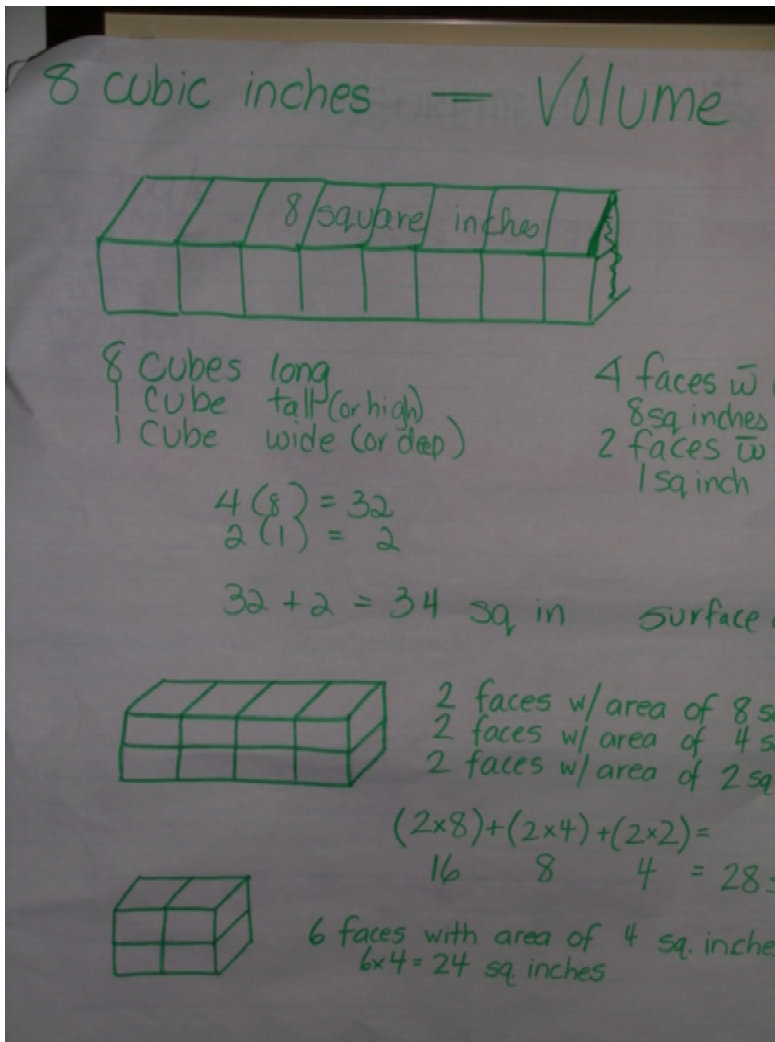 8 cubic inches — Volume
8 square inches
8 cubes long
1 cube tall (or high)
1 cube wide (or deep)
4 faces w̄
8 sq inches
2 faces w̄
1 sq inch
4 (8) = 32
2 (1) = 2
32 + 2 = 34 sq in surface
2 faces w/ area of 8 s
2 faces w/ area of 4 s
2 faces w/ area of 2 sq
(2×8)+(2×4)+(2×2)=
16 8 4 = 28 s
6 faces with area of 4 sq. inche
6×4 = 24 sq. inches